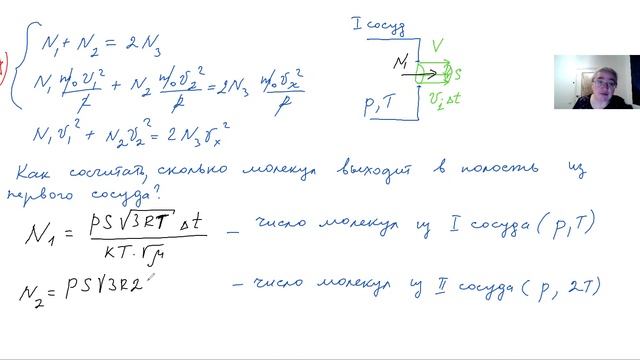 I сосуд
N₁ + N₂ = 2N₃
N₁ m₀v₁²/2 + N₂ m₀v₂²/2 = 2N₃ m₀vₓ²/2
N₁v₁² + N₂v₂² = 2N₃vₓ²
V
N₁
S
p,T
vᵢΔt
Как сосчитать, сколько молекул выходит в полость из
первого сосуда?
N₁ = pS√3RT Δt / kT·√μ – число молекул из I сосуда (p,T)
N₂ = pS√3R2 – число молекул из II сосуда (p, 2T)